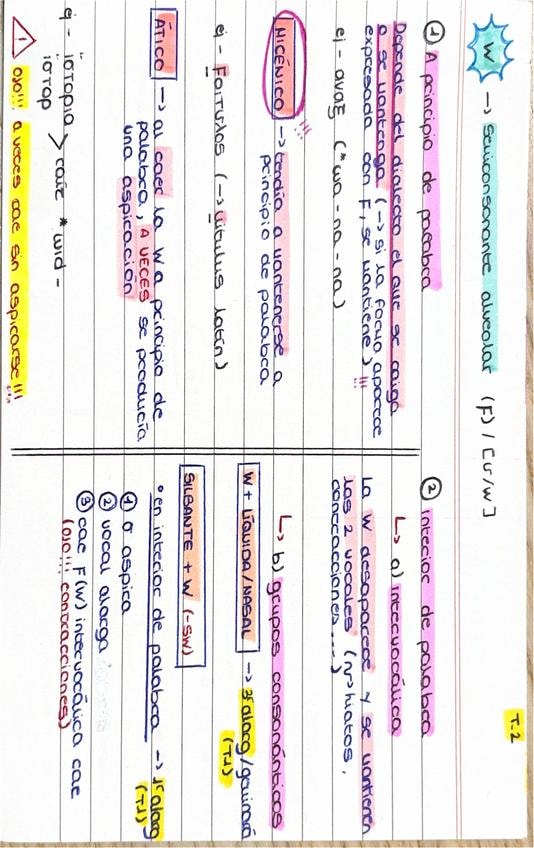 T.2
W → Semiconsonante alveolar (F) / [v/w]
① A principio de palabra
Depende del dialecto el que se caiga
o se mantenga (→ si la forma aparece
expresada con F, se mantiene) !!!
ej - αναξ (*wa - na - na)
MICÉNICO → tendía a mantenerse a
principio de palabra
ej - Fατυλος (→ vitulus latín)
ÁTICO → al caer la W a principio de
palabra, A VECES se producía
una aspiración
ej - ἱστορία > raíz *wid -
ἱστορ
! OJO!!! a veces cae sin aspirarse!!!
② Interior de palabra
↳ a) intervocálica
la W desaparece y se mantienen
las 2 vocales (→ hiatos,
contracciones...)
↳ b) grupos consonánticos
W + LÍQUIDA/NASAL → 3º alarg/geminará
(T.1)
SILBANTE + W (-sw)
° en interior de palabra → 1º alarg
(T.1)
① σ aspira
② vocal alarga
③ cae F(W) intervocálica cae
(OJO!!! contracciones)